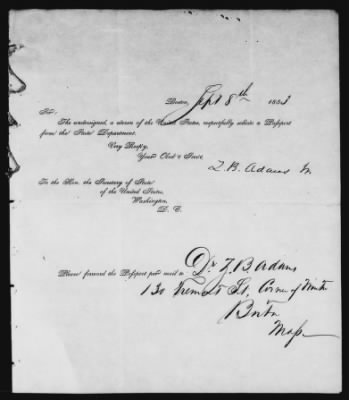 Boston, Sept 8th 1853
Sir:
The undersigned, a citizen of the United States, respectfully solicits a Passport
from the State Department.
Very Resp'y,
Your Obdt Servt
Z. B. Adams
To the Hon. the Secretary of State
of the United States,
Washington,
D. C.
Please forward the Passport per mail to Dr Z. B. Adams
130 Tremont St, Corner of Winter
Boston
Mass